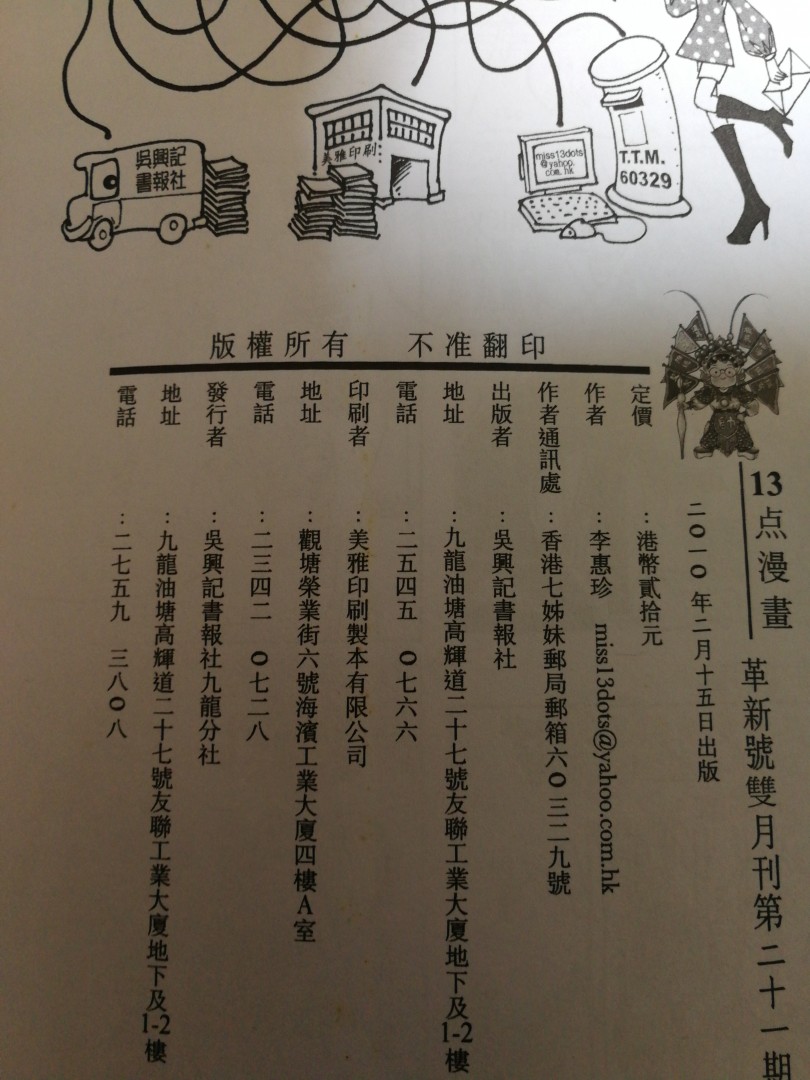 吳興記
書報社
美雅印刷
miss13dots
@yahoo.
com.hk
T.T.M.
60329
版權所有 不准翻印
13点漫畫 革新號雙月刊第二十一期
二〇一〇年二月十五日出版
定價：港幣貳拾元
作者：李惠珍 miss13dots@yahoo.com.hk
作者通訊處：香港七姊妹郵局郵箱六〇三二九號
出版者：吳興記書報社
地址：九龍油塘高輝道二十七號友聯工業大廈地下及1-2樓
電話：二五四五 〇七六六
印刷者：美雅印刷製本有限公司
地址：觀塘榮業街六號海濱工業大廈四樓A室
電話：二三四二 〇七二八
發行者：吳興記書報社九龍分社
地址：九龍油塘高輝道二十七號友聯工業大廈地下及1-2樓
電話：二七五九 三八〇八